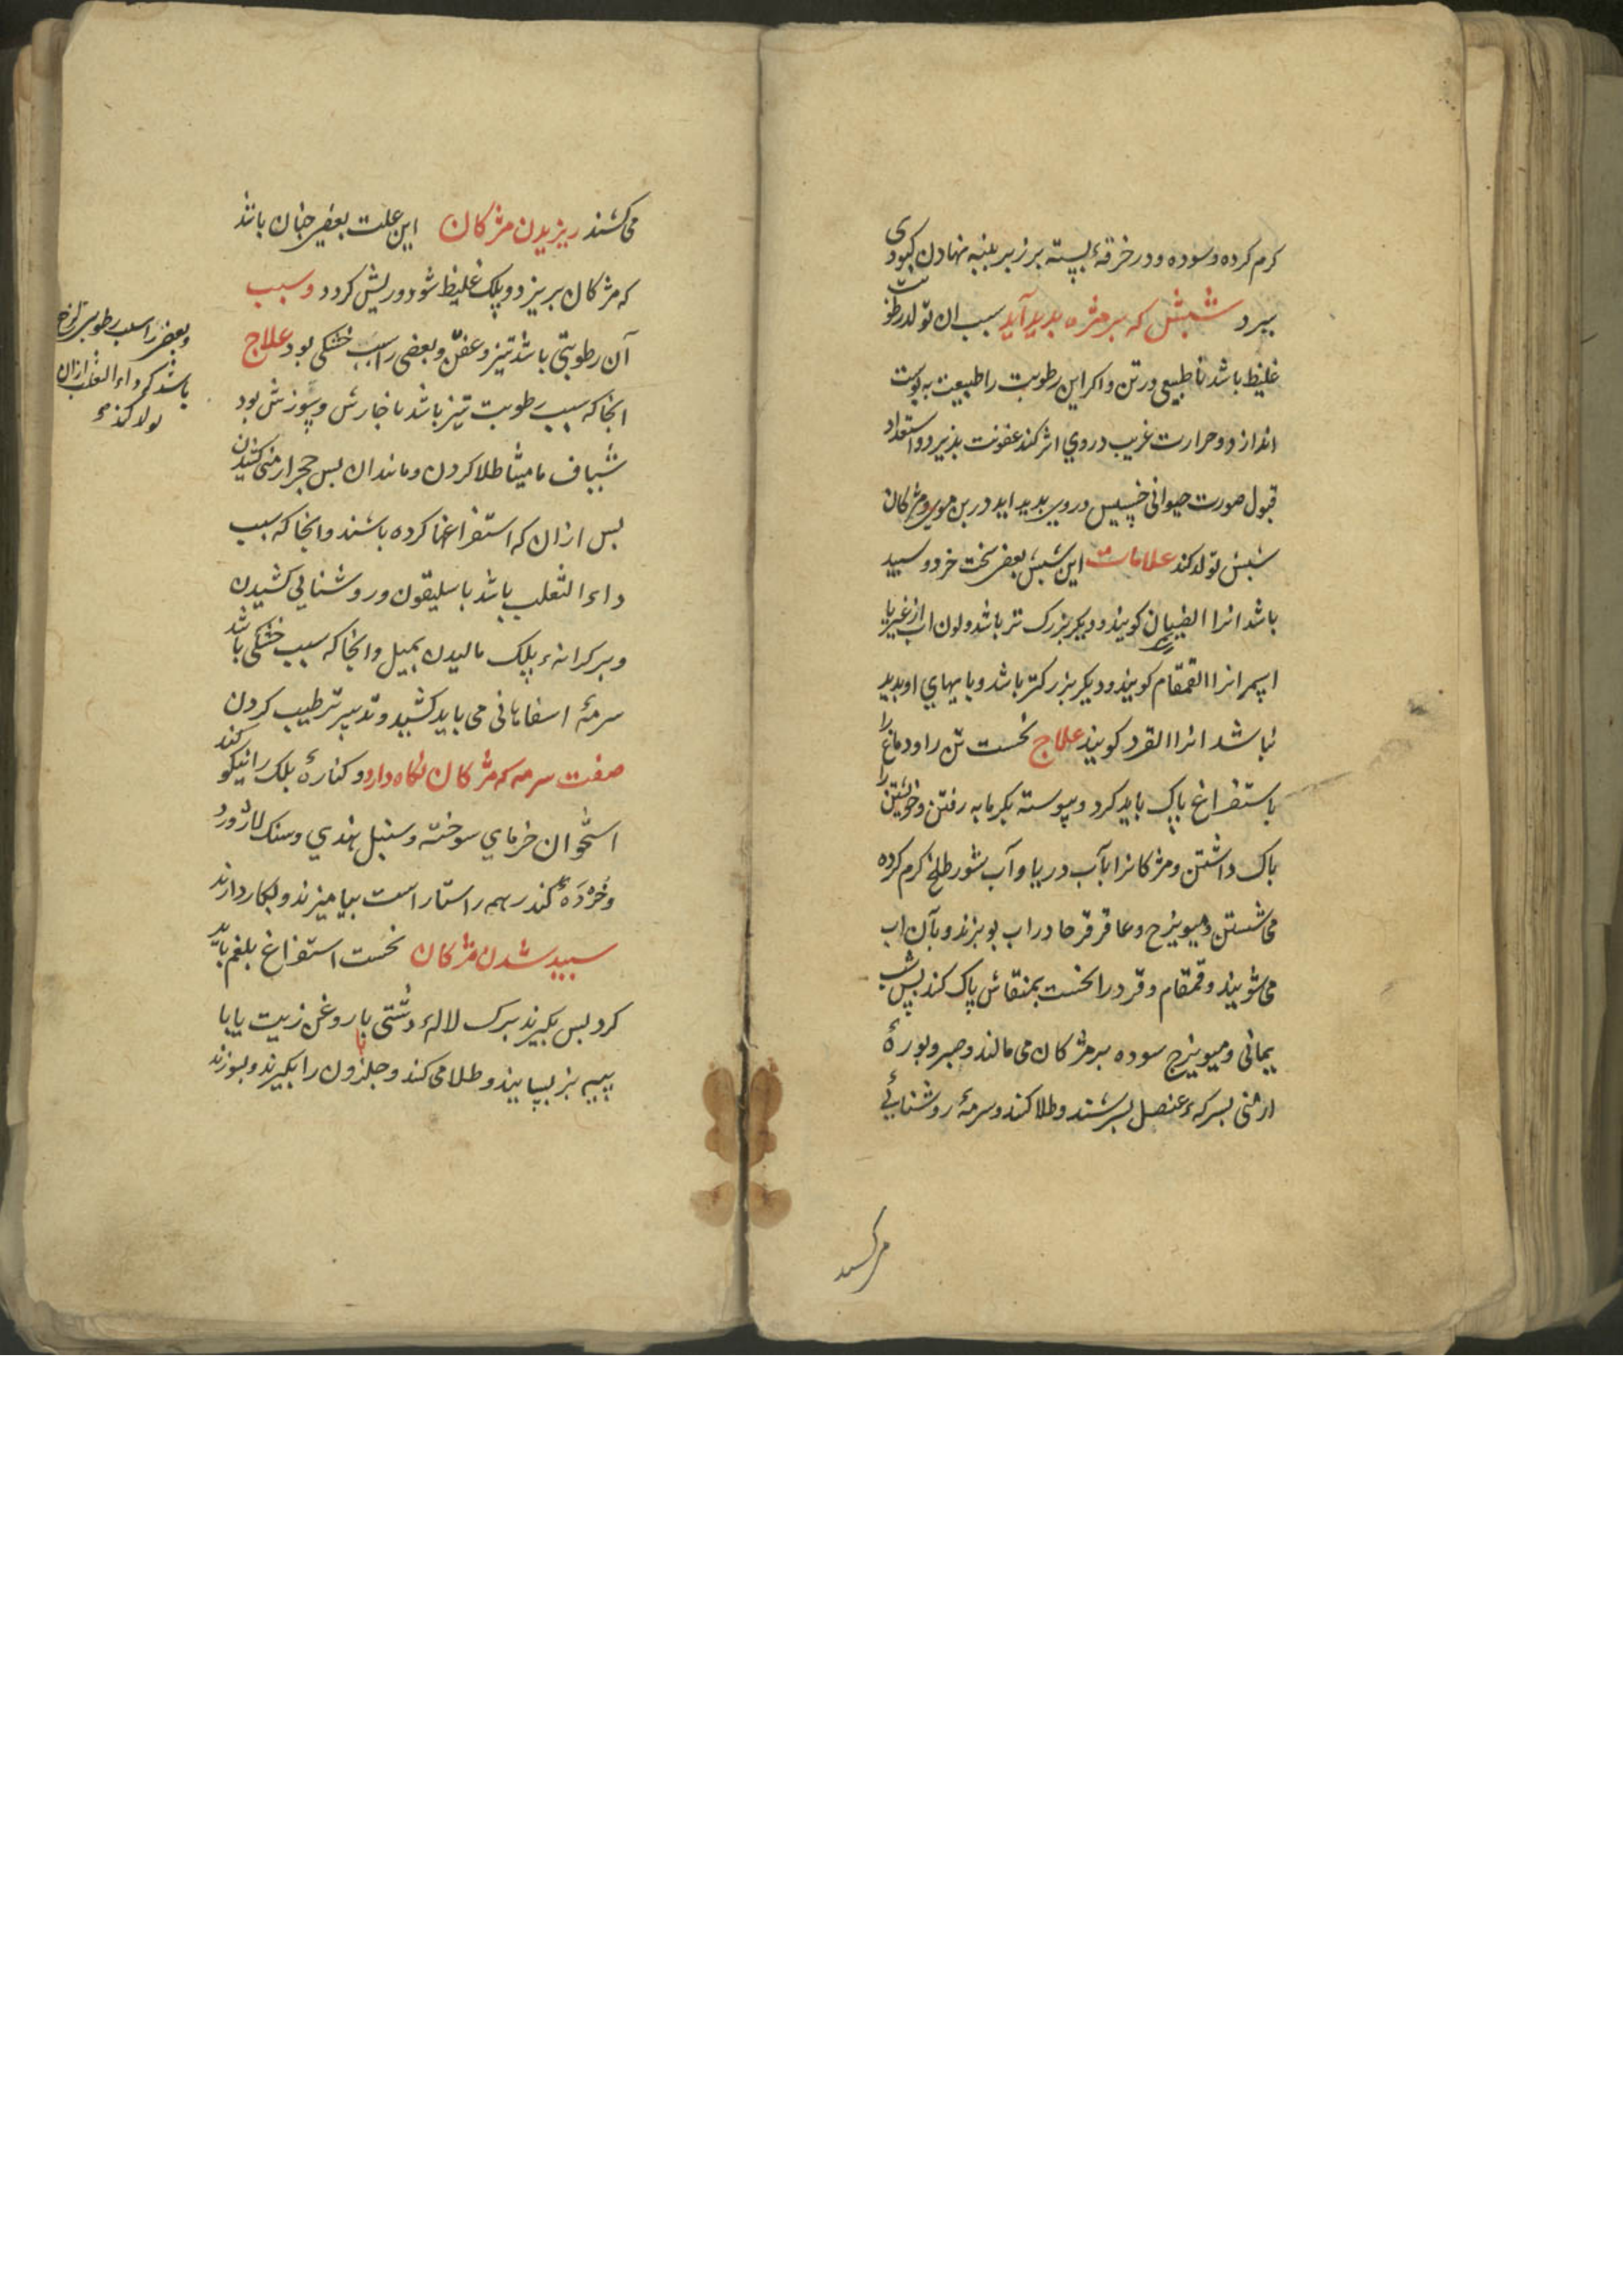 کرم کرده و سوده و در خرقهٔ بسته بر زبر پنبه نهادن کبودی
ببرد شبش که بر مژه بدید آید سبب ان تولد رطوبت
غلیظ باشد نا طبیعی در تن و اکر این رطوبت را طبیعت به پوست
اندازد و حرارت غریب در وی اثر کند عفونت بذیرد و استعداد
قبول صورت حیوانی خسیس در وی بدید اید در بن موی مژکان
شبش تولد کند علامات این شبش بعضی سخت خرد و سبید
باشد انرا کویند و دیکر بزرک تر باشد و لون
انرا القمقام کویند و دیکر بزرکتر باشد و پایهای او بدید
نباشد انرا القرد کویند علاج نخست تن را و دماغ را
باستفراغ پاک باید کرد و پیوسته بکرمابه رفتن و خویشتن را
باک داشتن و مژکانرا بآب دریا و آب شور طلخ کرم کرده
می شستن و میویزج و عاقرقرحا در اب بوبزند و بآن اب
می شویند و قمقام و قرد را نخست بمنقاش پاک کند پس شب
یمانی و میویزج سوده بر مژکان می مالند و صبر و بورهٔ
ارمنی بسرکهٔ عنصل بسرشند و طلا کند و سرمهٔ روشنایی
می کشند ریزیدن مژکان این علت بعضی جنان باشد
که مژکان بریزد و پلک غلیظ شود و ریش کردد و سبب
آن رطوبتی باشد تیز و عفن و بعضی را سبب خشکی بود علاج
انجا که سبب رطوبت تیز باشد با خارش و سوزش بود
شیاف مامیثا طلا کردن و مانند ان بس حجر ارمنی کشیدن
بس از ان که استفراغها کرده باشند و انجا که سبب
داء الثعلب باشد باسلیقون و روشنایی کشیدن
و بر کرانهٔ پلک مالیدن بمیل و انجا که سبب خشکی باشد
سرمهٔ اسفاهانی می باید کشید و تدبیر ترطیب کردن
صفت سرمه که مژکان نکاه دارد و کنارهٔ پلک را نیکو کند
استخوان خرمای سوخته و سنبل هندی و سنک لاژورد
و خردهٔ کندر همه راستاراست بیامیزند و بکار دارند
سبید شدن مژکان نخست استفراغ بلغم باید
کرد بس بکیرند برک لالهٔ دشتی با روغن زیت یا با
پیه بز بسایند و طلا می کند و حلزون را بکیرند و بسوزند
و بعضی را سبب رطوبتی
باشد که داء الثعلب از ان
تولد کند
می کشند